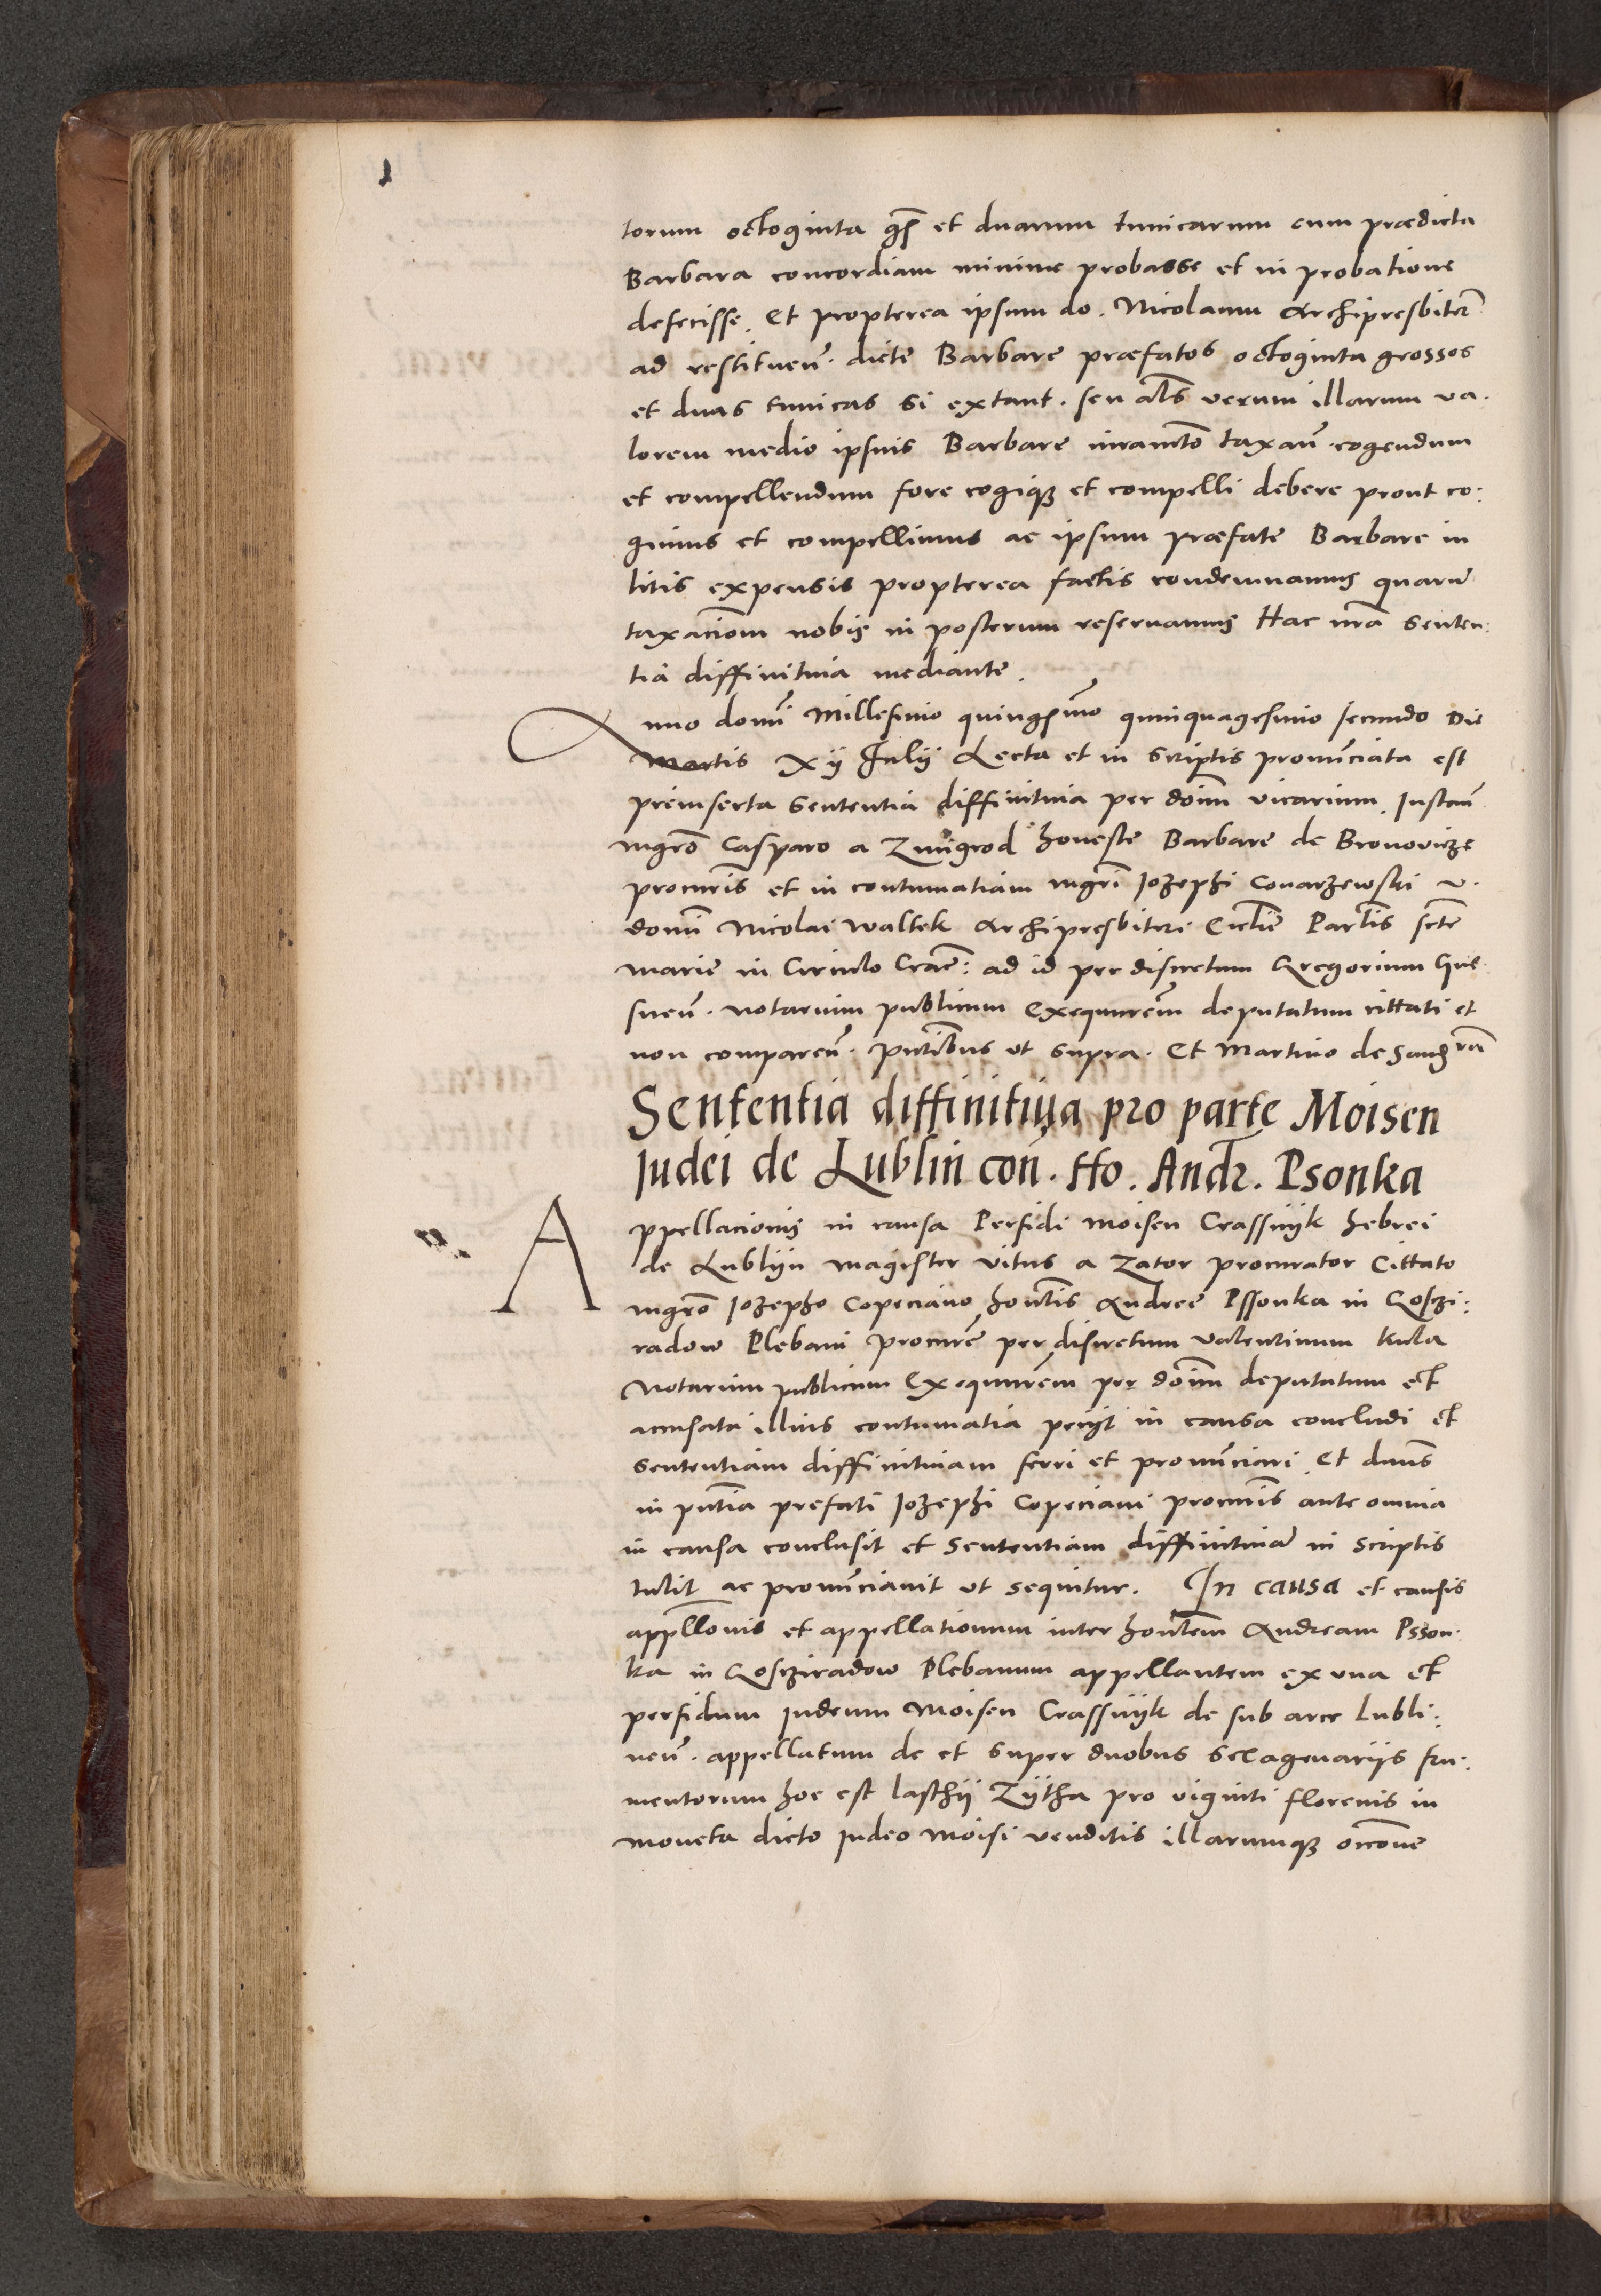 torum octoginta gros et duarum tunicarum cum prædicta
Barbara concordiam minime probasse et in probatione
defecisse. Et propterea ipsum do. Nicolaum Archipresbiter̄
ad restituen̄. dicte Barbare præfatos octoginta grossos
et duas tunicas si extant. seu al̄s verum illarum va.
lorem medio ipsius Barbare iuramēto taxan̄. cogendum
et compellendum fore cogiqꝫ et compelli debere prout co:
gimus et compellimus ac ipsum præfate Barbare in
litis expensis propterea factis condemnamus quarū
taxaciōm nobis in posterum reservamus Hac nr̄a senten:
tia diffinitiva mediante.
nno domī Millesimo quingēsimo quinquagesimo secundo Die
Martis Xij Julij Lecta et in scriptis pronūnciata est
preinserta sententia diffinitiva per dom̄ vicarium. Instan̄
mgrō Casparo a Zmigrod honeste Barbare de Bronovicze
procuris et in contumatiam mgrī Jozephi Conarzewski v.
domī Nicolai Waltek Archipresbiteri Ecclīe Parlīs scte
Marie in Circulo Crac̄: ad id per discretum Gregorium Gne.
snen̄. notarium publicum Exequutorem deputatum cittati et
non comparen̄. p̄ntibus ut supra. Et Martino de
Sententia diffinitiva pro parte Moisen
Judei de Lublin con̄. Ho. Andr. Psonka
A
ppellacionis in causa Perfidi Moisen Crassnyk hebrei
de Lublyn Magister Vitus a Zator procurator Cittato
mgrō Jozepho Copeciano hon̄lis Andree Pssonka in Gosczi:
radow Plebani procurē per discretum Valentinum Kula
Notarium publicum Exequutorem per dom̄ deputatum et
accusata illius contumatia peciit in causa concludi et
sententiam diffinitivam ferri et pronūnciari. Et dn̄us
in p̄ntia prefati Jozephi Copeciani procuris ante omnia
in causa conclusit et sententiam diffinitivā in scriptis
tulit ac pronūnciavit ut sequitur. In causa et causis
appllōnis et appellationum inter honlem Andream Psson:
ka in Goscziradow Plebanum appellantem ex una et
perfidum Judeum Moisen Crassnyk de sub arce Lubli:
nen̄. appellatum de et super duobus sexagenariis fru:
mentorum hoc est laschij Zytha pro viginti florenis in
moneta dicto Judeo Moisi venditis illarumqꝫ occōne